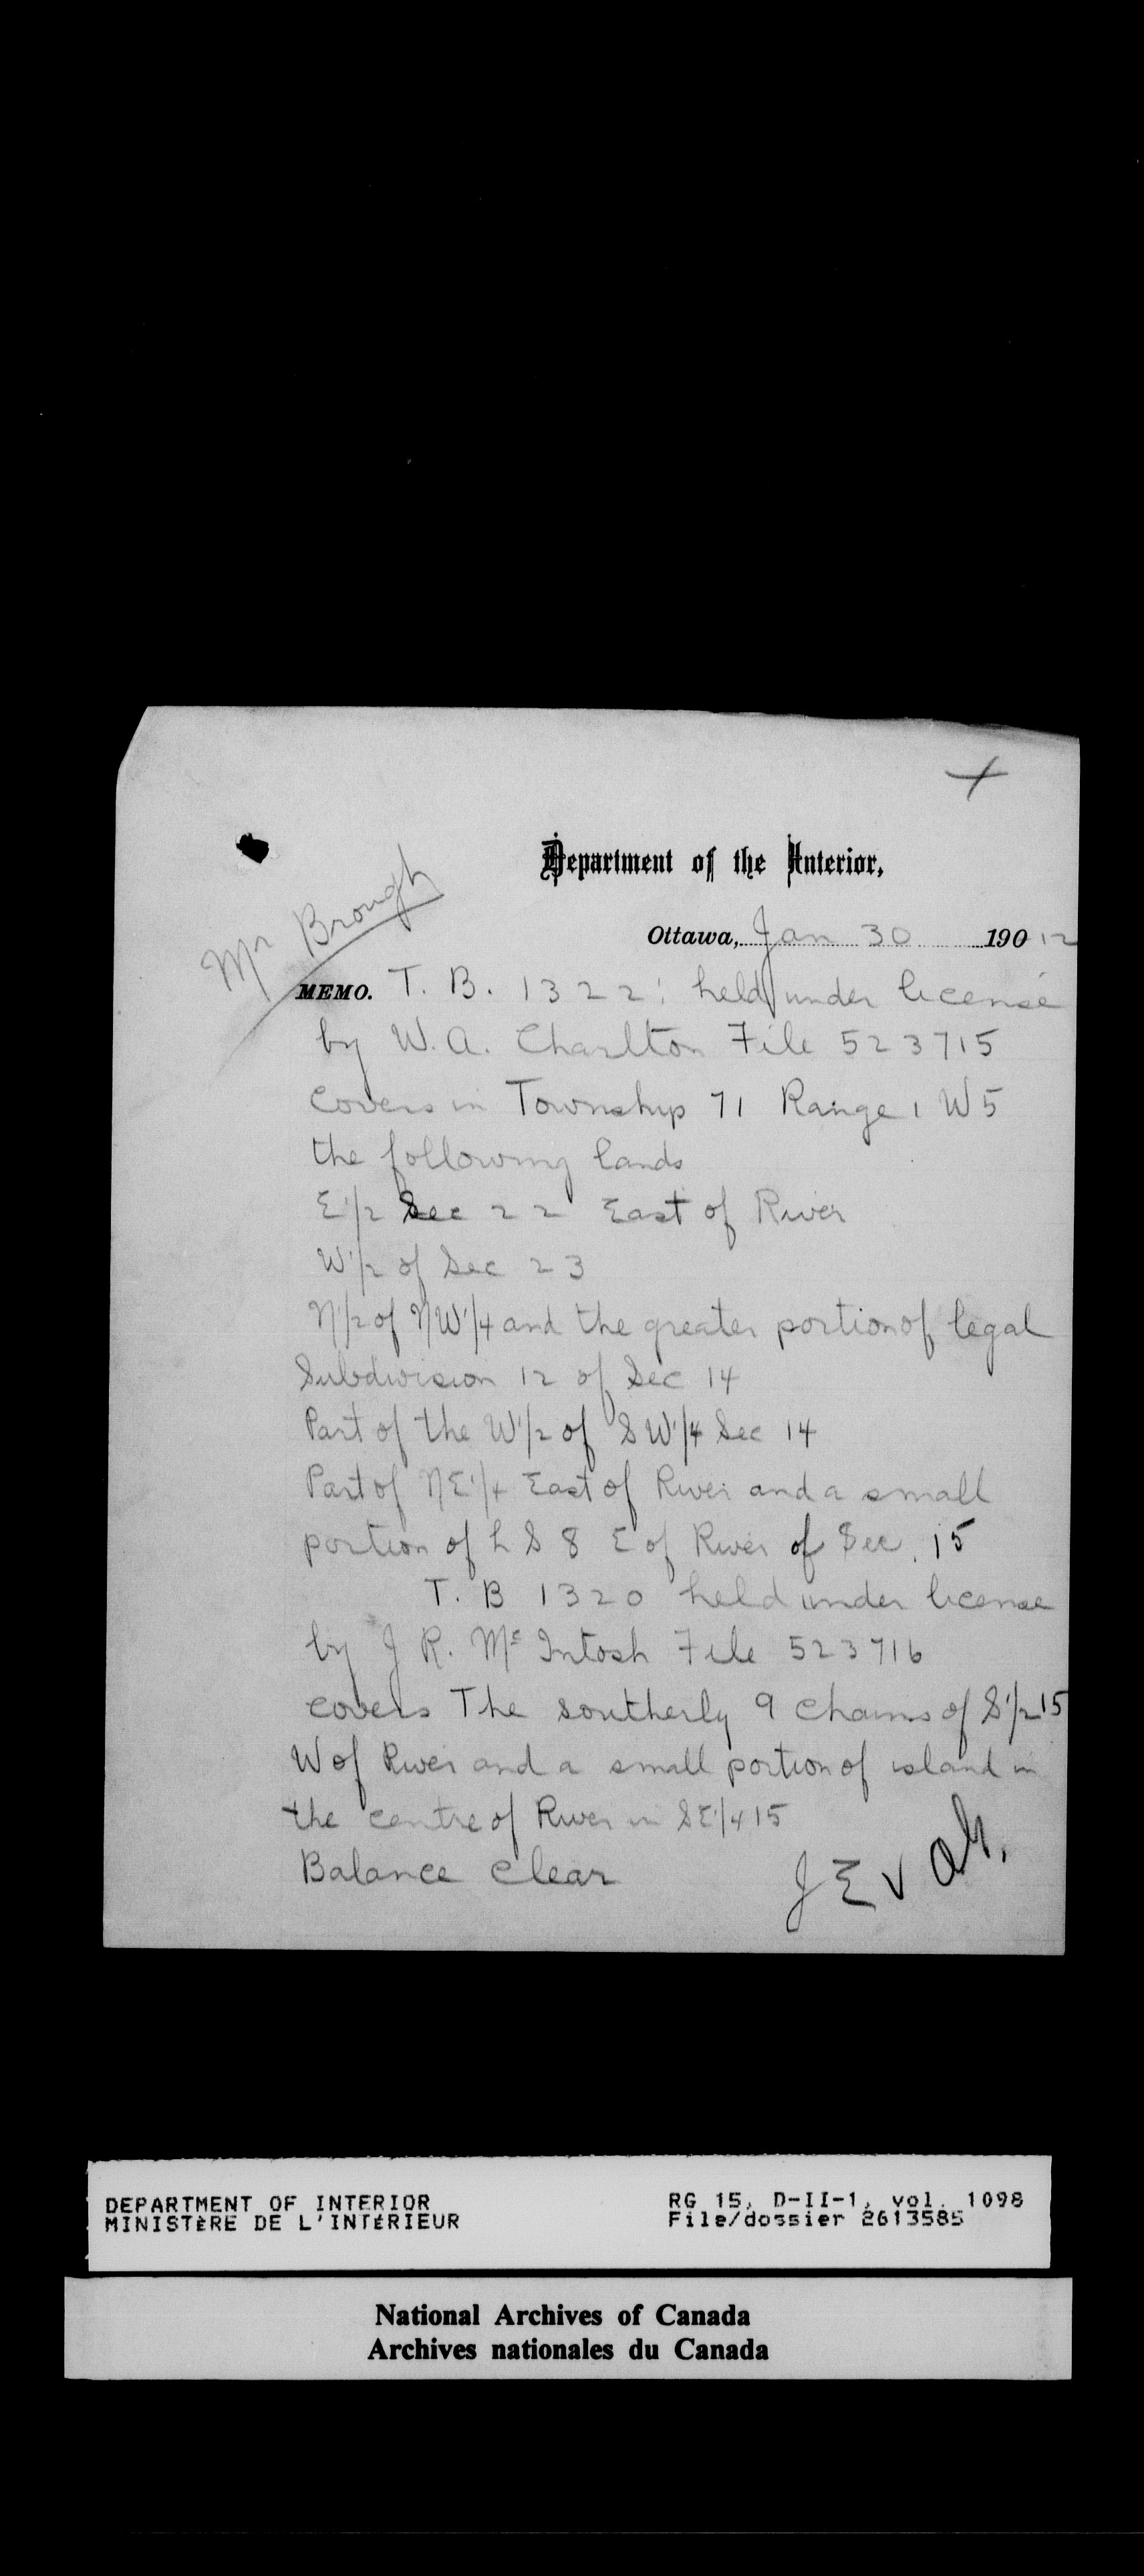 Department of the Interior,
Ottawa, Jan 30 190 12
Mr Brough
MEMO. T. B. 1322: held under license
by W. A. Charlton File 523715
Covers in Township 71 Range 1 W5
the following lands
E 1/2 Sec 22 East of River
W 1/2 of Sec 23
N 1/2 of NW 1/4 and the greater portion of legal
Subdivision 12 of Sec 14
Part of the W 1/2 of SW 1/4 Sec 14
Part of NE 1/4 East of River and a small
portion of L S 8 E of River of Sec. 15
T. B 1320 held under license
by J R. McIntosh File 523716
covers The southerly 9 chains of S 1/2 15
W of River and a small portion of island in
the centre of River in SE 1/4 15
Balance Clear
DEPARTMENT OF INTERIOR
MINISTÈRE DE L'INTÉRIEUR
RG 15, D-II-1, vol. 1098
File/dossier 2613585
National Archives of Canada
Archives nationales du Canada